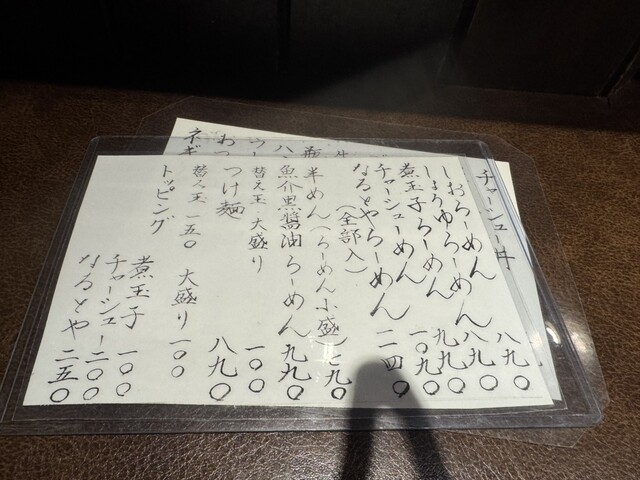 チャーシュー丼
しおらーめん 八九〇
しょうゆらーめん 八九〇
煮玉子らーめん 九九〇
チャーシューめん 一〇九〇
なるとやらーめん 一二四〇
(全部入)
半めん(らーめん小盛) 七九〇
魚介黒醤油らーめん 九九〇
替え玉・大盛り 一〇〇
つけ麺 八九〇
替え玉 一五〇 大盛り 一〇〇
トッピング
煮玉子 一〇〇
チャーシュー 二〇〇
なるとや 二五〇
ネギ